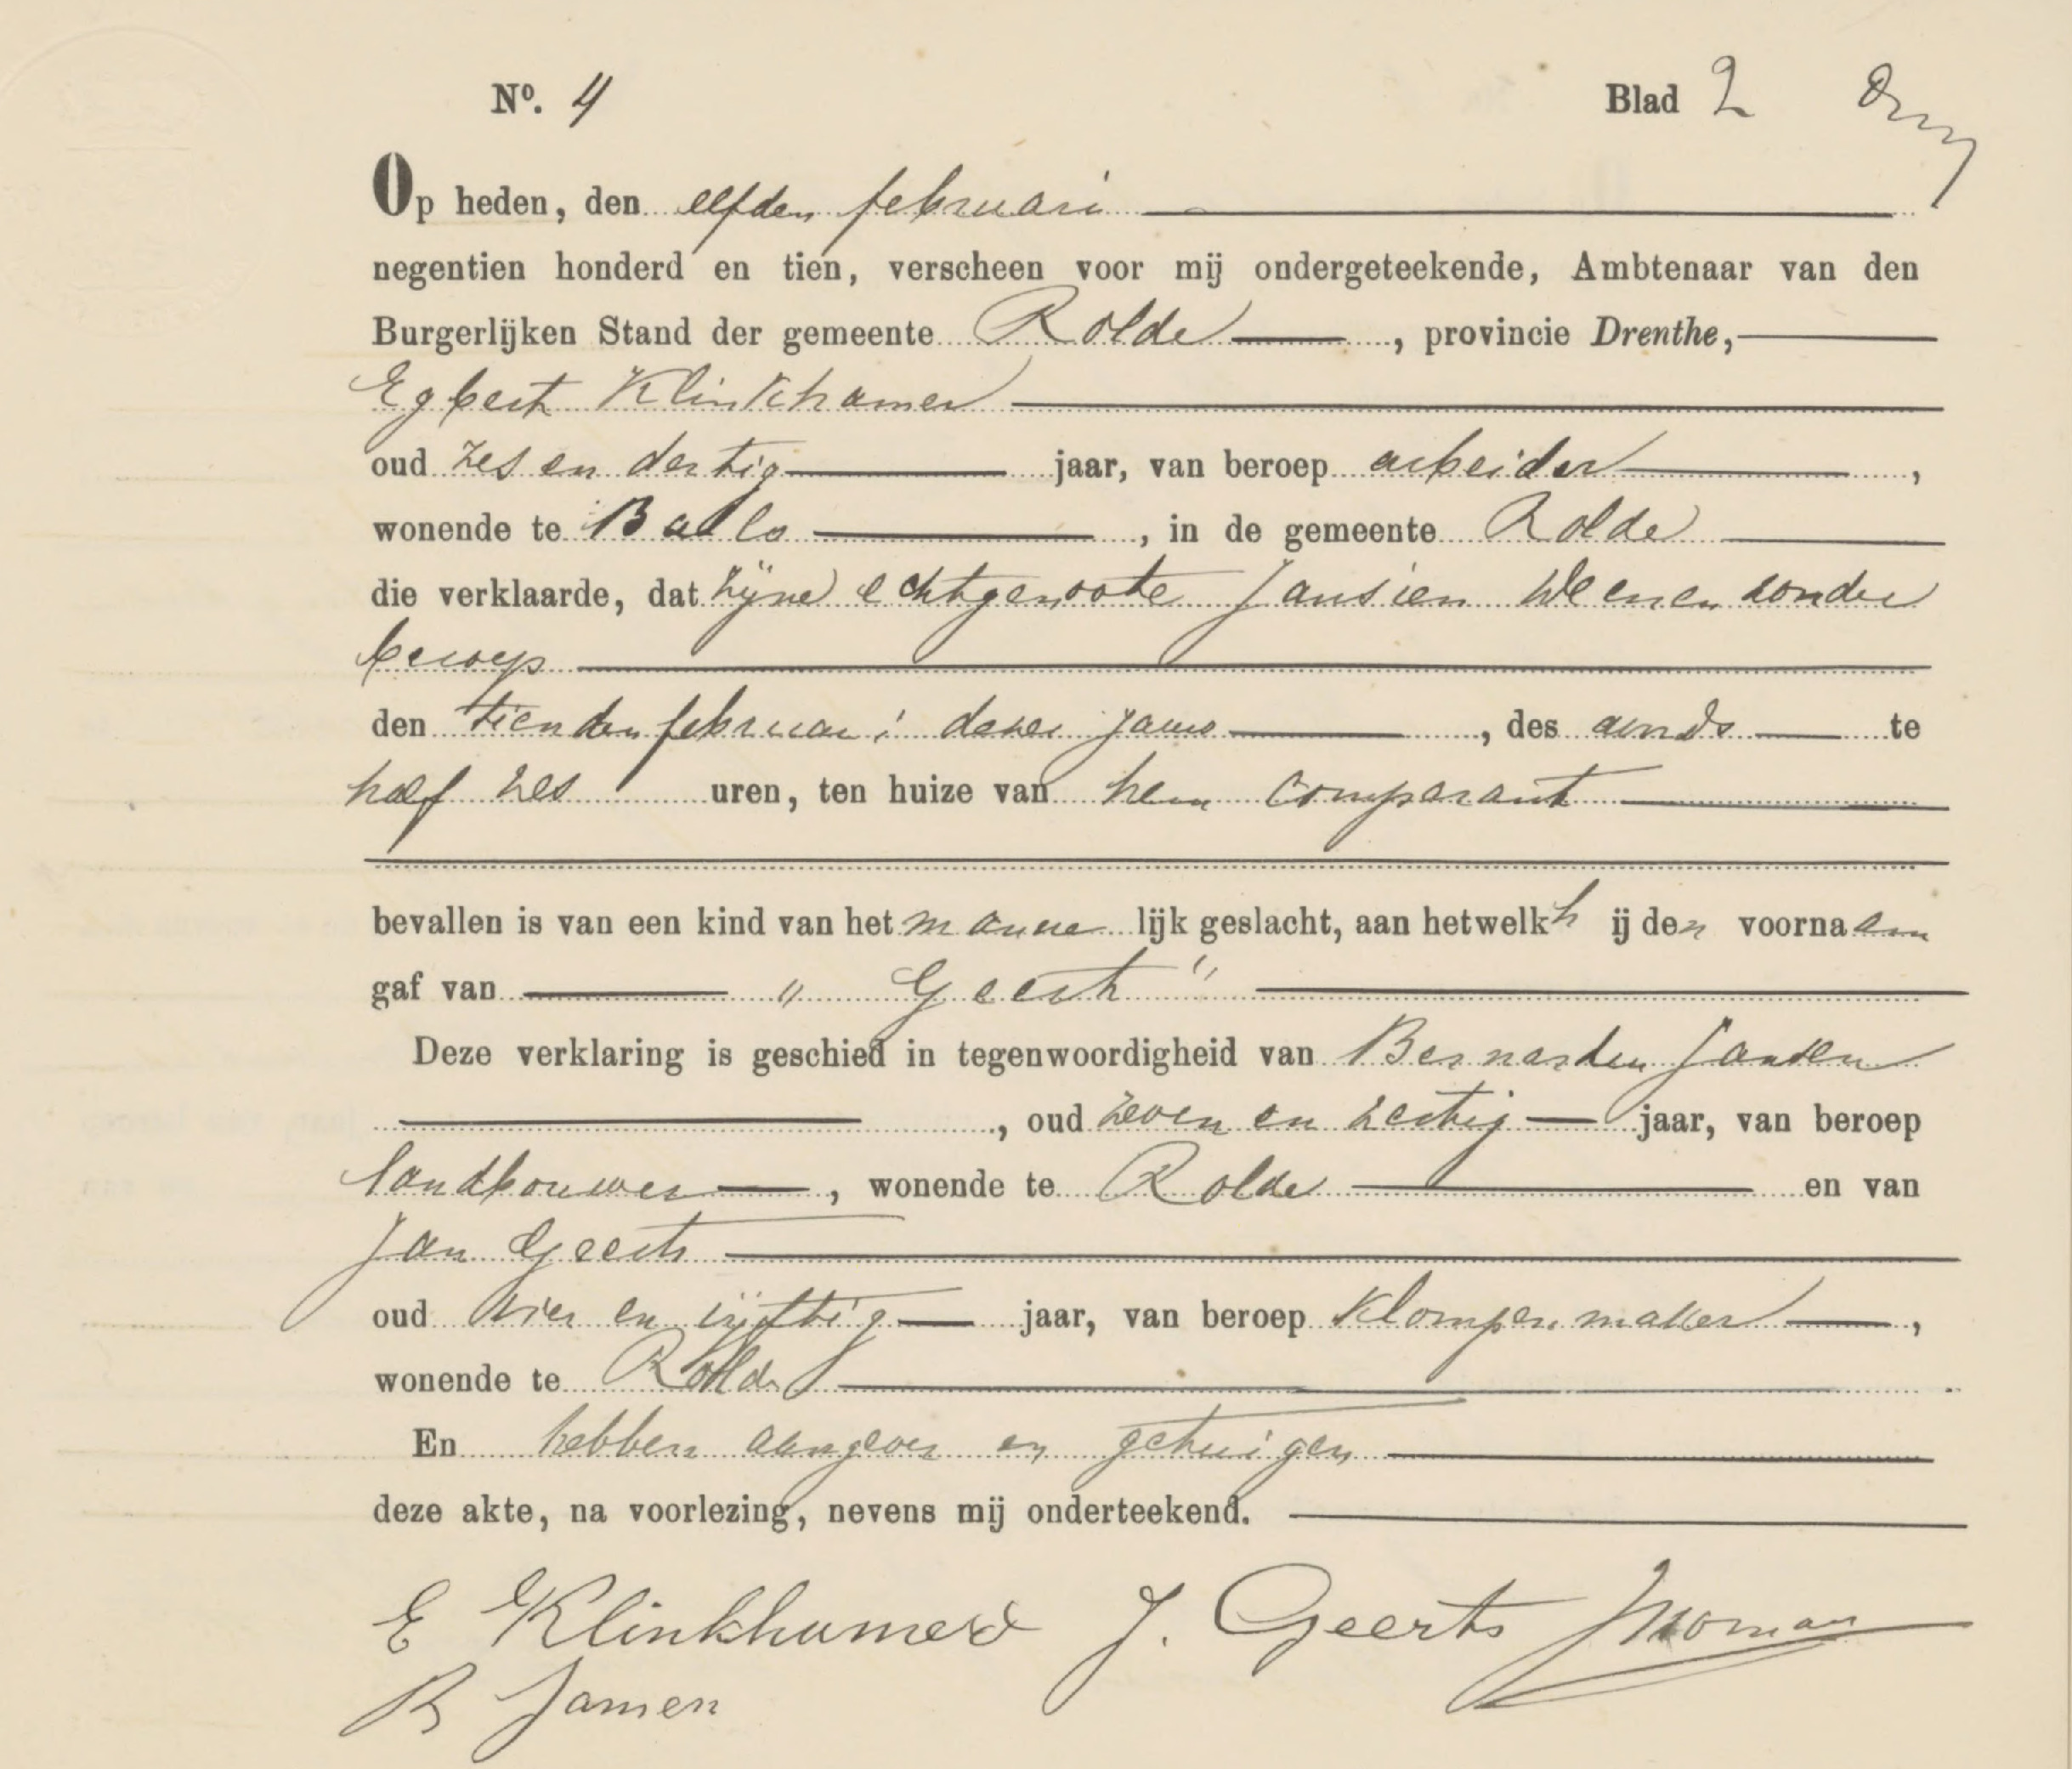 Nº. 4 Blad 2
Op heden, den elfden februari
negentien honderd en tien, verscheen voor mij ondergeteekende, Ambtenaar van den
Burgerlijken Stand der gemeente Rolde, provincie Drenthe,
Egbert Klinkhamer
oud zes en dertig jaar, van beroep arbeider,
wonende te Ballo, in de gemeente Rolde
die verklaarde, dat zijne echtgenoote Jansien Weenen zonder
beroep
den tienden februari dezes jaars, des avonds te
half zes uren, ten huize van hem comparant
bevallen is van een kind van het mannelijk geslacht, aan hetwelk hij den voornaam
gaf van "Geert"
Deze verklaring is geschied in tegenwoordigheid van Jansen
, oud zeven en zestig jaar, van beroep
landbouwer, wonende te Rolde en van
Jan Geerts
oud vier en vijftig jaar, van beroep Klompenmaker,
wonende te Rolde
En hebben aangever en getuigen
deze akte, na voorlezing, nevens mij onderteekend.
E Klinkhamer J. Geerts
B Jansen